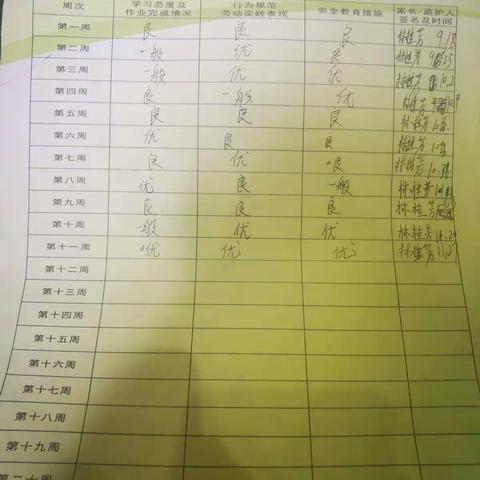 周次 学习态度及作业完成情况 行为规范劳动实践表现 安全教育措施 家长/监护人签名及时间
第一周 良 良 良 林桂芳 9.18
第二周 一般 优 良 林桂芳
第三周 一般 优 优 林桂芳
第四周 良 一般 优 林桂芳
第五周 良 良 良 林桂芳
第六周 优 良 良 林桂芳
第七周 良 优 良 林桂芳
第八周 优 良 一般 林桂芳
第九周 良 良 良 林桂芳
第十周 一般 优 优 林桂芳
第十一周 优 优 优 林桂芳
第十二周
第十三周
第十四周
第十五周
第十六周
第十七周
第十八周
第十九周
第二十周